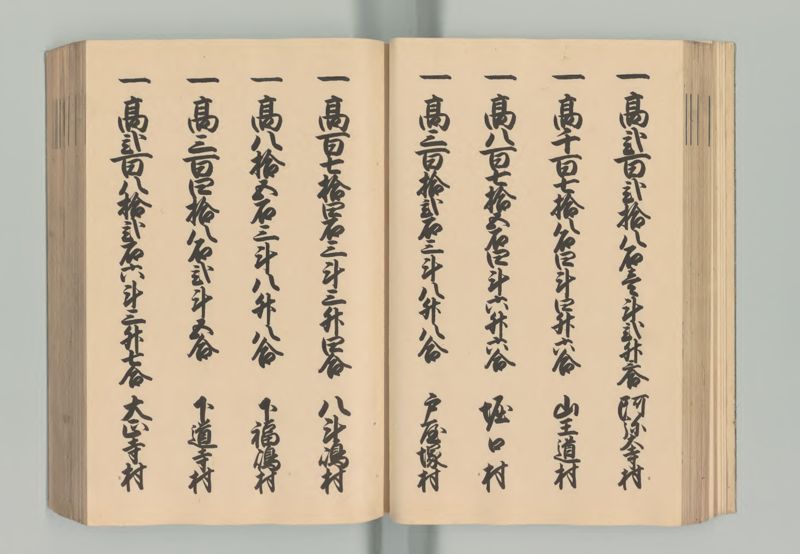 一 高弐百弐拾八石壱斗弐升六合 阿弥大寺村
一 高千百七拾八石四斗四升六合 山王道村
一 高八百七拾五石四斗六升六合 堀口村
一 高三百拾弐石三斗八升八合 戸屋塚村
一 高百七拾四石三斗三升四合 八斗嶋村
一 高八拾五石三斗八升八合 下福嶋村
一 高三百四拾八石弐斗五合 下道寺村
一 高弐百八拾弐石六斗三升七合 大正寺村